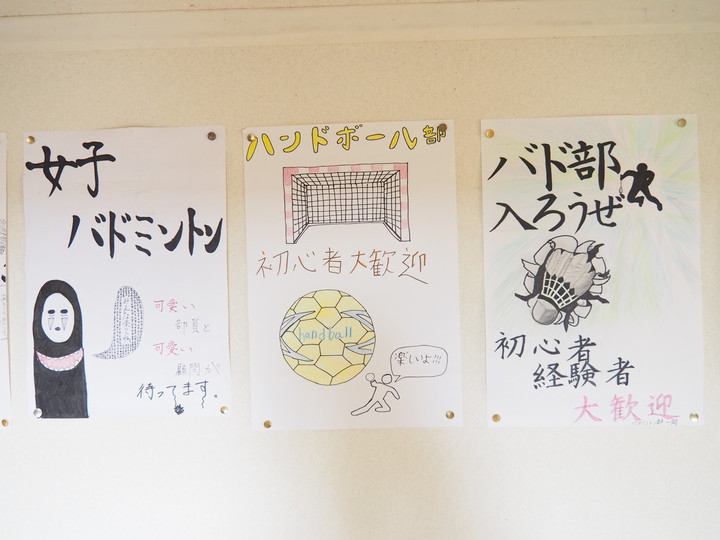 女子
バドミントン
可愛い
部員と
可愛い
顧問が
待ってます。
ハンドボール部
初心者大歓迎
handball
楽しいよ!!!
バド部
入ろうぜ
初心者
経験者
大歓迎